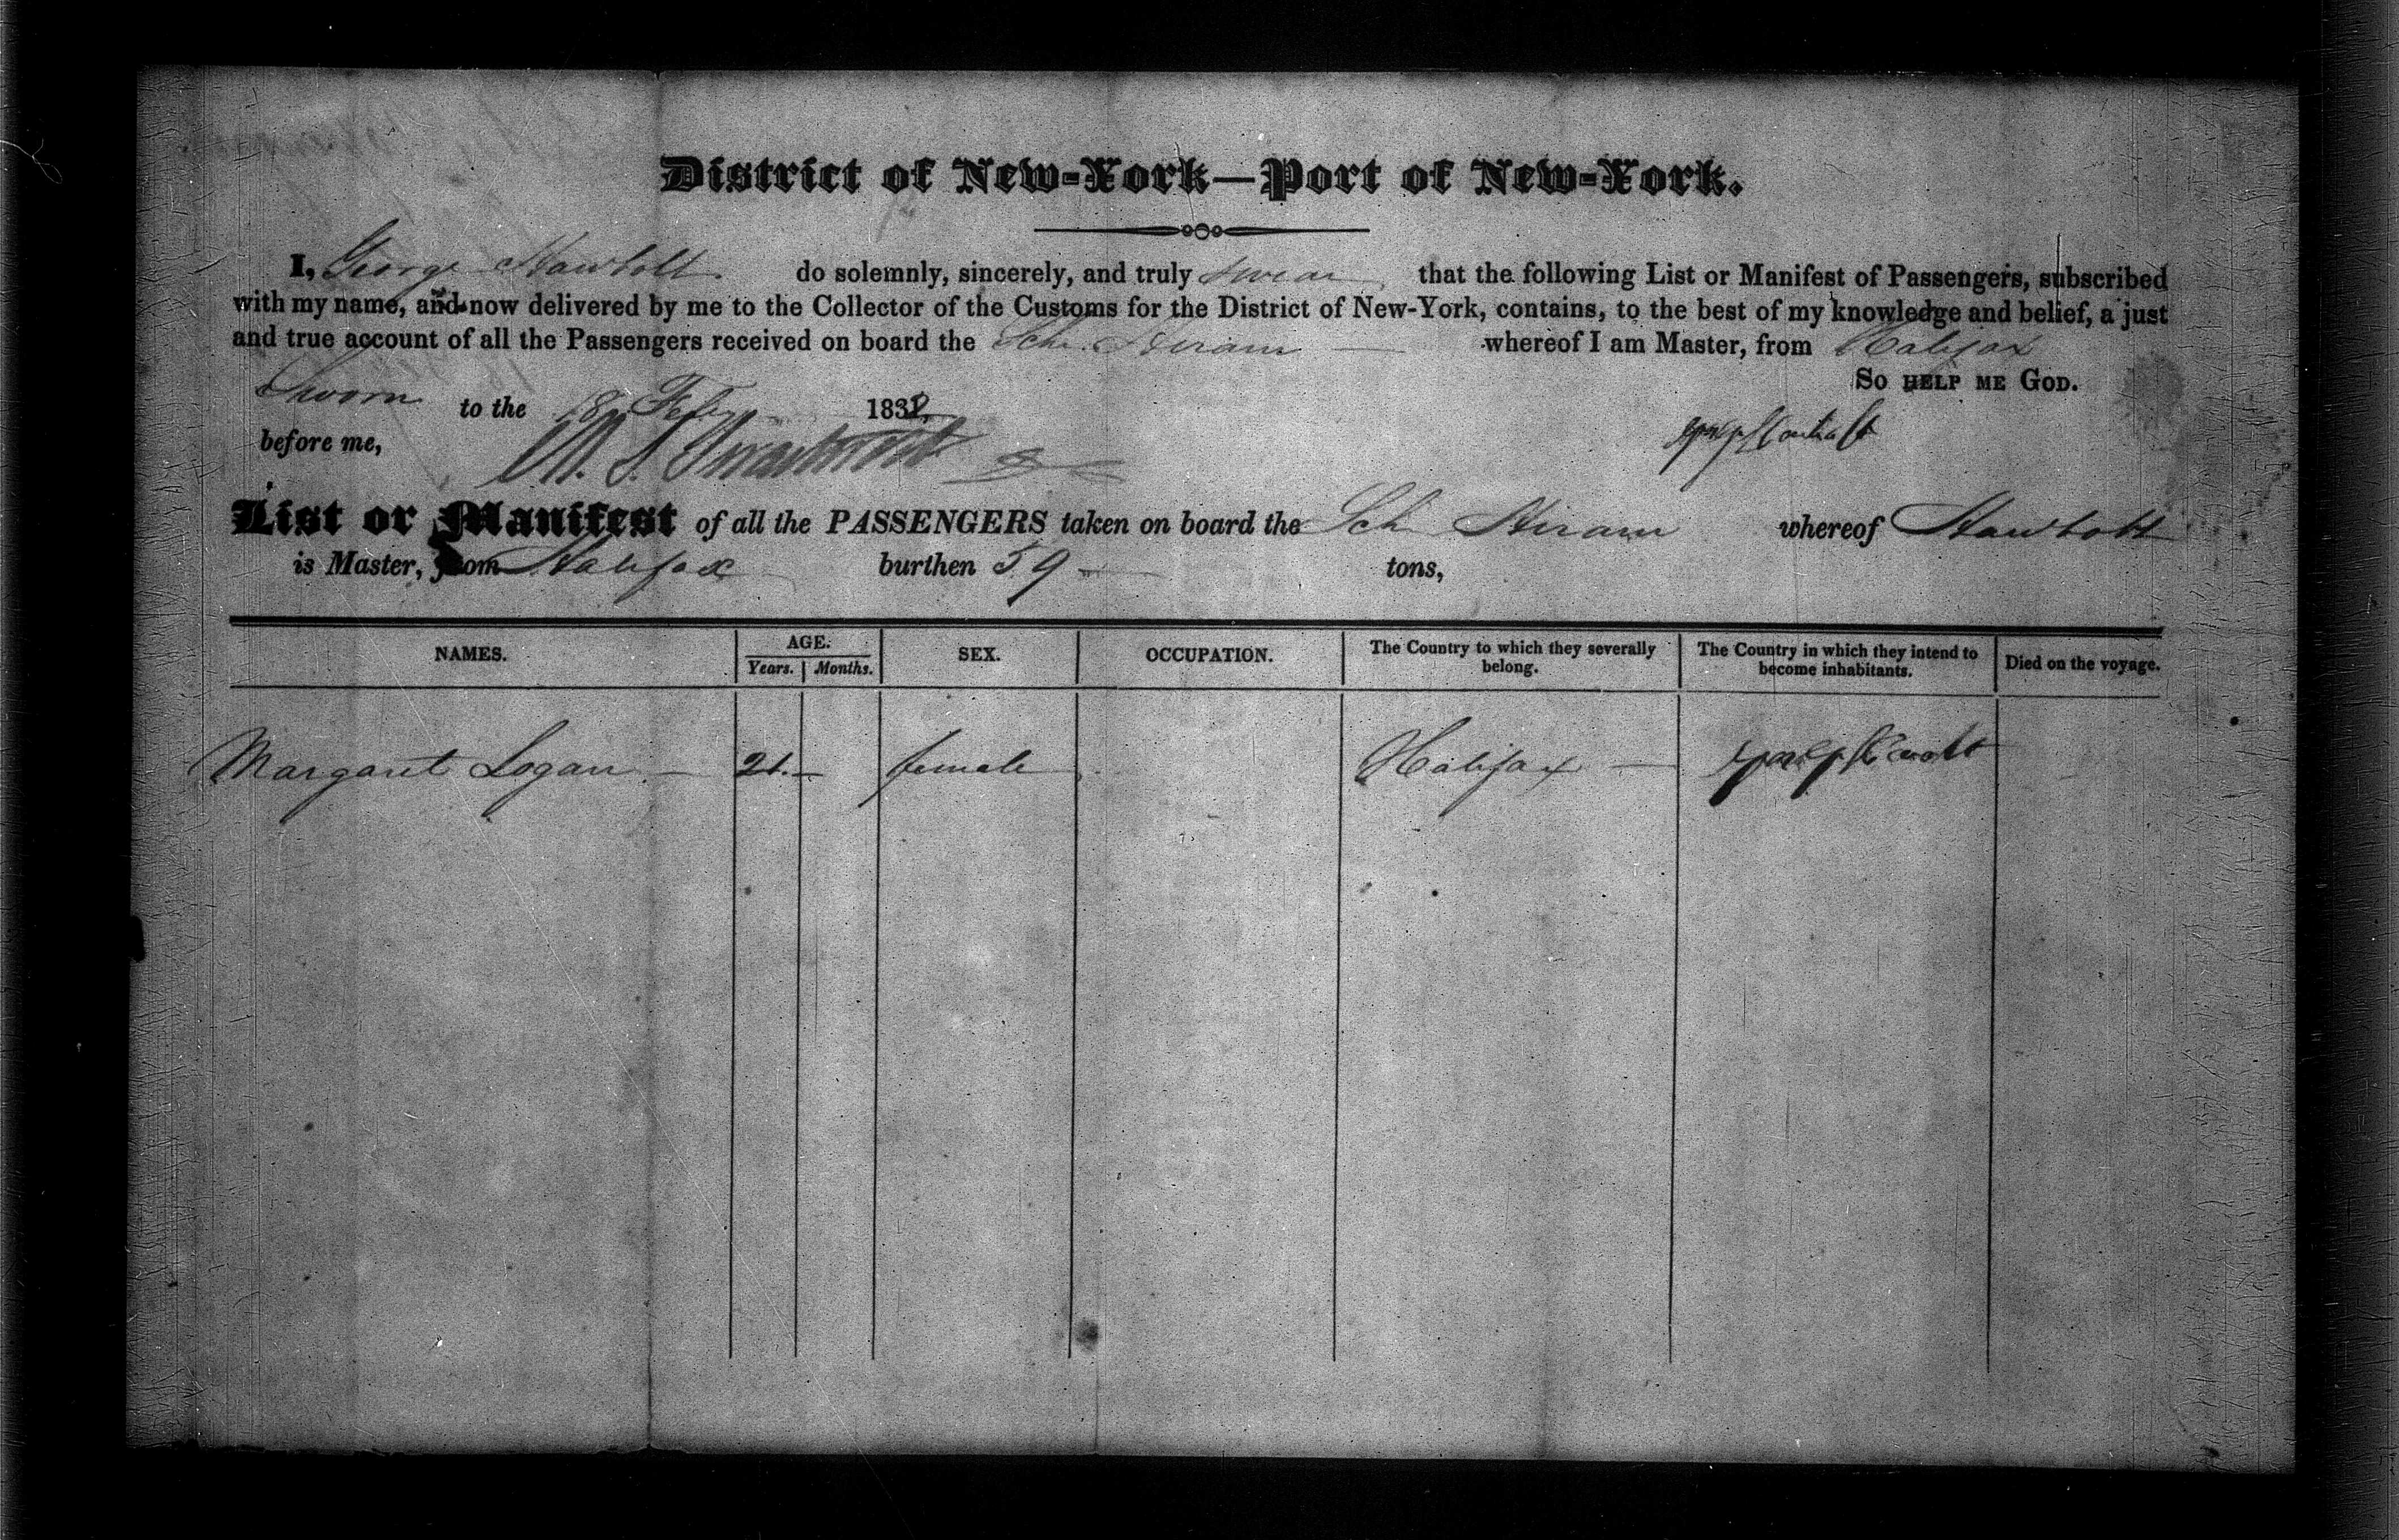 District of New-York—Port of New-York.
I, George Hawbolt do solemnly, sincerely, and truly swear that the following List or Manifest of Passengers, subscribed
with my name, and now delivered by me to the Collector of the Customs for the District of New-York, contains, to the best of my knowledge and belief, a just
and true account of all the Passengers received on board the Schr. Hiram whereof I am Master, from Halifax
So HELP ME GOD.
Sworn to the 18 Feby 1832
before me,
List or Manifest of all the PASSENGERS taken on board the Sch Hiram whereof Hawbolt
is Master, from Halifax burthen 59 tons,
NAMES. AGE. SEX. OCCUPATION. The Country to which they severally belong. The Country in which they intend to become inhabitants. Died on the voyage.
Years. Months.
Margaret Logan 21 female Halifax